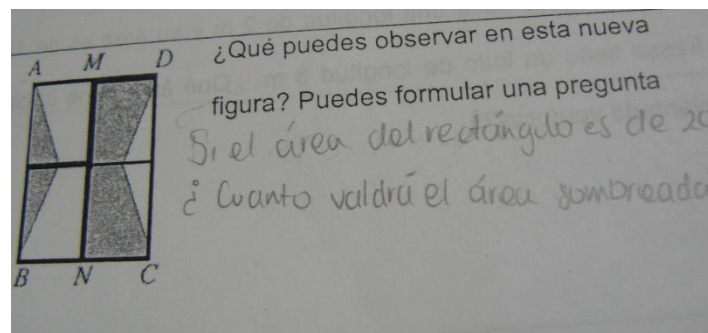 A M D
¿Qué puedes observar en esta nueva
figura? Puedes formular una pregunta
Si el área del rectángulo es de 20
¿Cuanto valdrá el área sombreada
B N C